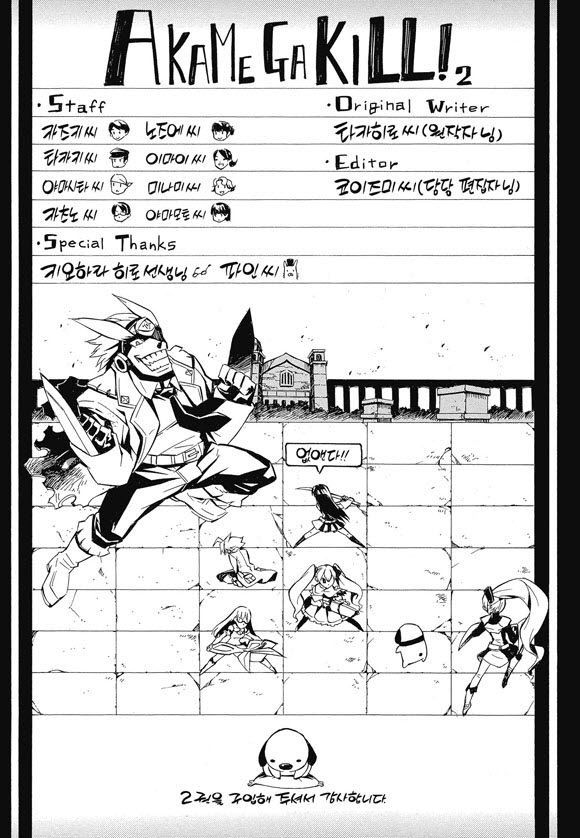 AKAME GA KILL! 2
· Staff
카즈키 씨 노조에 씨
타카키 씨 이마이 씨
야마시타 씨 미나미 씨
카츠노 씨 야마모토 씨
· Special Thanks
키요하라 히로 선생님 파인 씨
· Original Writer
타카히로 씨(원작자님)
· Editor
코이즈미 씨(담당 편집자님)
없애다!!
2권을 구입해 주셔서 감사합니다.